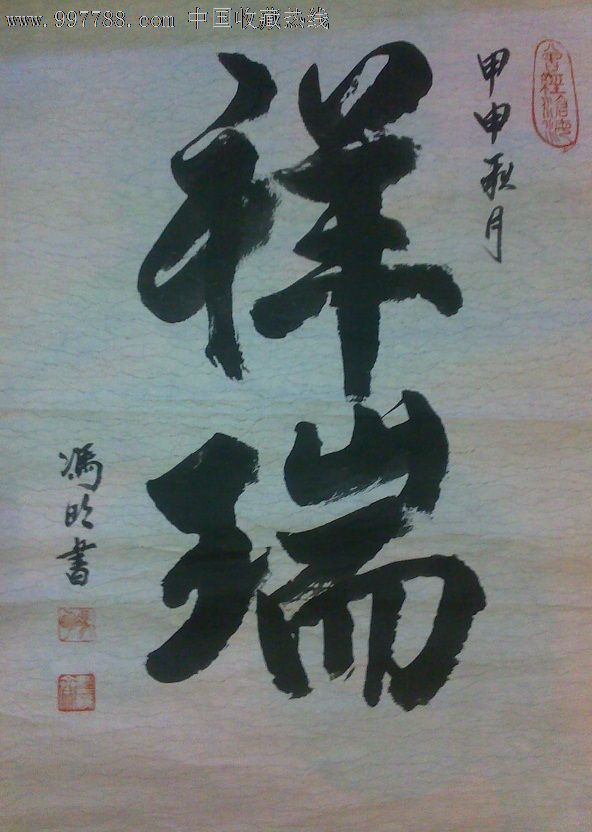 www.997788.com 中国收藏热线
甲申秋月
祥瑞
馮明書